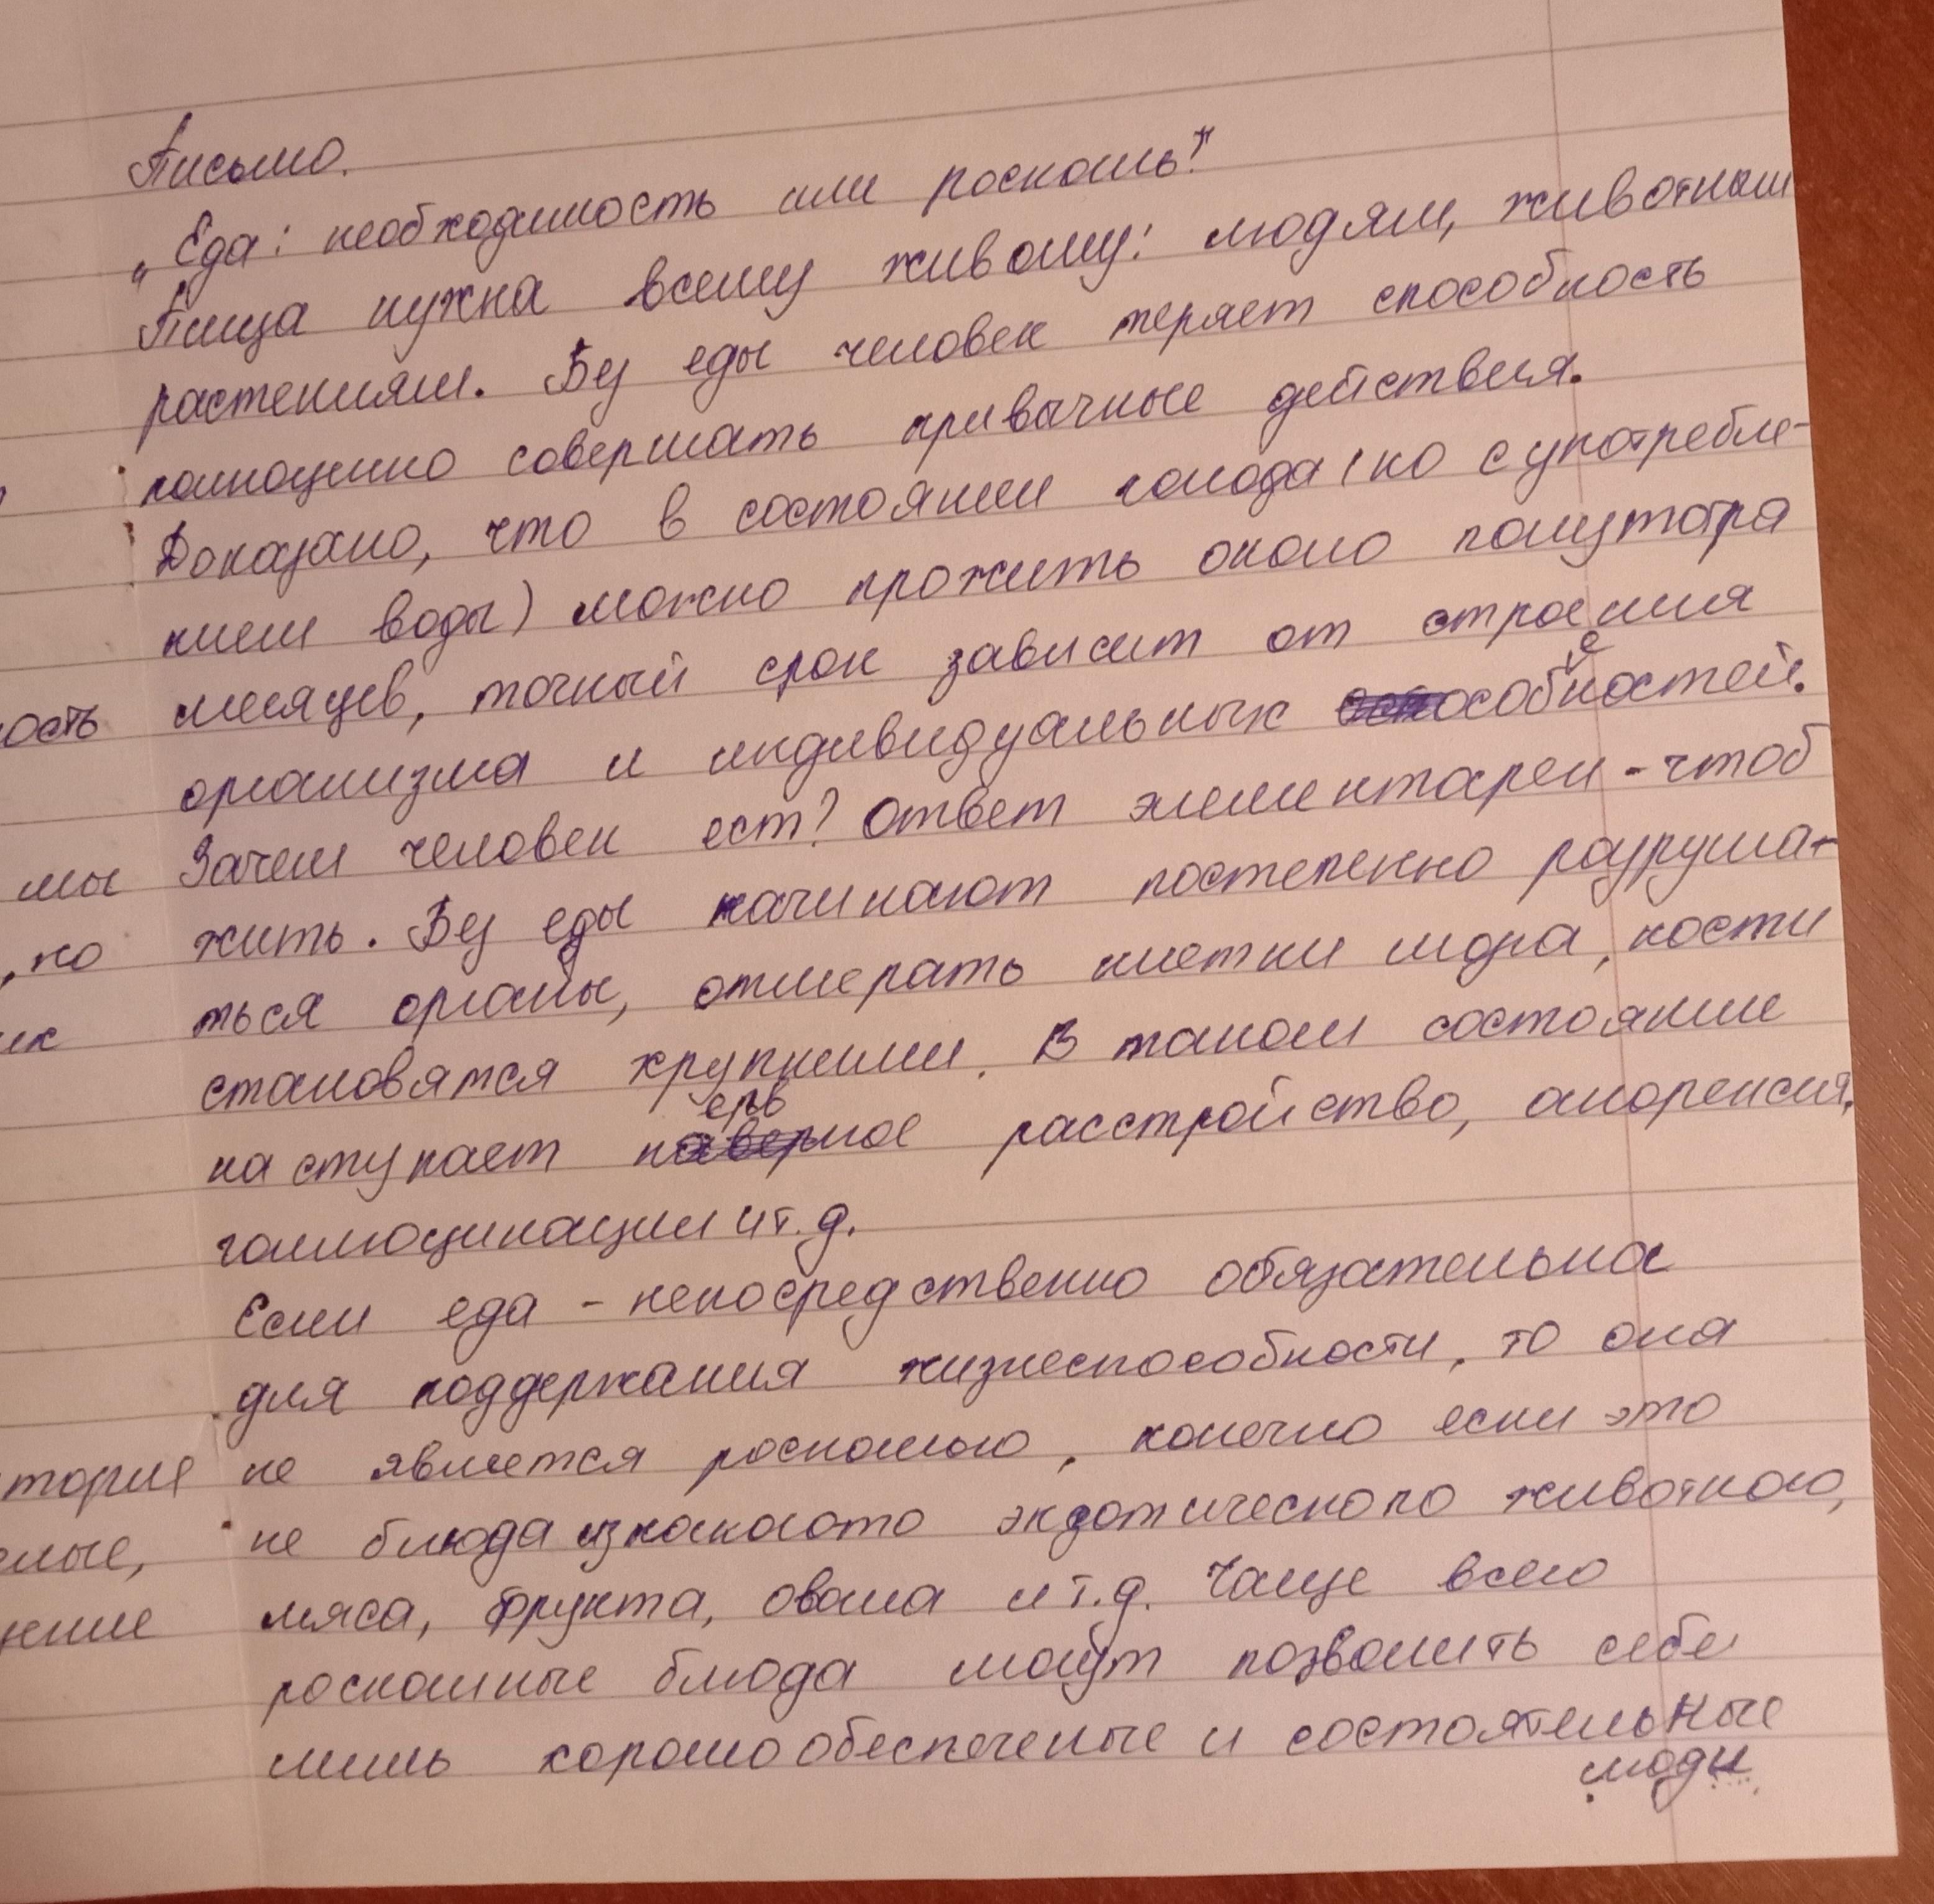 Письмо.
„Еда: необходимость или роскошь?"
Пища нужна всему живому: людям, животным
растениям. Без еды человек теряет способность
полноценно совершать привычные действия.
Доказано, что в состоянии голода (но с употребле-
нием воды) можно прожить около полутора
ость месяцев, точный срок зависит от строения
организма и индивидуальных особенностей.
мы Зачем человек ест? Ответ элементарен - чтоб
, но жить. Без еды начинают постепенно разруша-
их ться органы, отмерать клетки мозга, кости
становятся хрупкими. В таком состояние
наступает нервное расстройство, анорексия,
галлюцинации и т.д.
Если еда - непосредственно обязательна
для поддержания жизнеспособности, то она
тория не является роскошью, конечно если это
елые, не блюда из какогото экзотического животного,
жение мяса, фрукта, оваща и т.д. Чаще всего
роскошные блюда могут позволить себе
лишь хорошо обеспеченые и состоятельные
люди